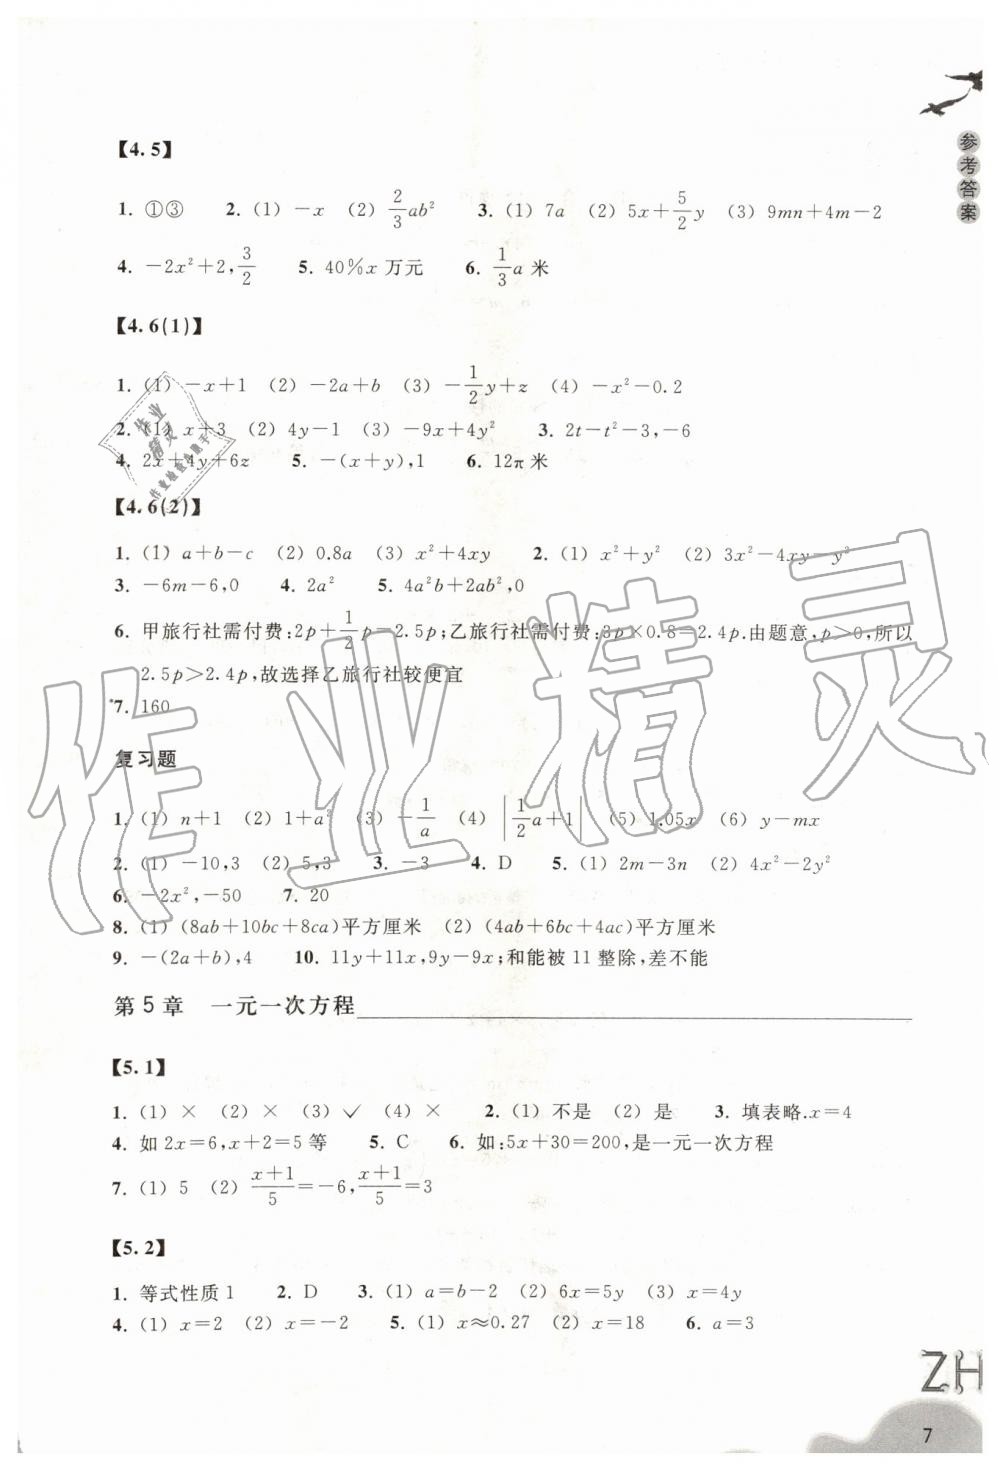 参考答案
【4.5】
1. ①③  2. (1) －x (2) 2/3ab²  3. (1) 7a (2) 5x＋5/2y (3) 9mn＋4m－2
4. －2x²＋2, 3/2  5. 40%x 万元  6. 1/3a 米
【4.6(1)】
1. (1) －x＋1 (2) －2a＋b (3) －1/2y＋z (4) －x²－0.2
2. (1) x＋3 (2) 4y－1 (3) －9x＋4y²  3. 2t－t²－3,－6
4. 2x＋4y＋6z  5. －(x＋y),1  6. 12π 米
【4.6(2)】
1. (1) a＋b－c (2) 0.8a (3) x²＋4xy  2. (1) x²＋y² (2) 3x²－4xy－y²
3. －6m－6,0  4. 2a²  5. 4a²b＋2ab²,0
6. 甲旅行社需付费:2p＋1/2p＝2.5p;乙旅行社需付费:3p×0.8＝2.4p.由题意,p＞0,所以
2.5p＞2.4p,故选择乙旅行社较便宜
*7. 160
复习题
1. (1) n＋1 (2) 1＋a² (3) －1/a (4) |1/2a＋1| (5) 1.05x (6) y－mx
2. (1) －10,3 (2) 5,3  3. －3  4. D  5. (1) 2m－3n (2) 4x²－2y²
6. －2x²,－50  7. 20
8. (1) (8ab＋10bc＋8ca)平方厘米 (2) (4ab＋6bc＋4ac)平方厘米
9. －(2a＋b),4  10. 11y＋11x,9y－9x;和能被 11 整除,差不能
第 5 章 一元一次方程
【5.1】
1. (1) × (2) × (3) ✓ (4) ×  2. (1) 不是 (2) 是  3. 填表略.x＝4
4. 如 2x＝6,x＋2＝5 等  5. C  6. 如:5x＋30＝200,是一元一次方程
7. (1) 5 (2) (x＋1)/5＝－6,(x＋1)/5＝3
【5.2】
1. 等式性质 1  2. D  3. (1) a＝b－2 (2) 6x＝5y (3) x＝4y
4. (1) x＝2 (2) x＝－2  5. (1) x≈0.27 (2) x＝18  6. a＝3
ZH
7
作业精灵
作业
精灵